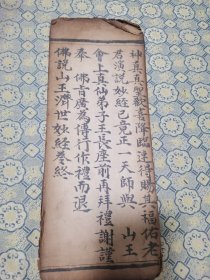 神真五聖歡喜降臨達得賜其福佑老
君演說妙經已竟正一天師與山王
會上真仙弟子王長座前再拜禮謝謹
奉佛旨廣為傳行作禮而退
佛說山王濟世妙經卷終